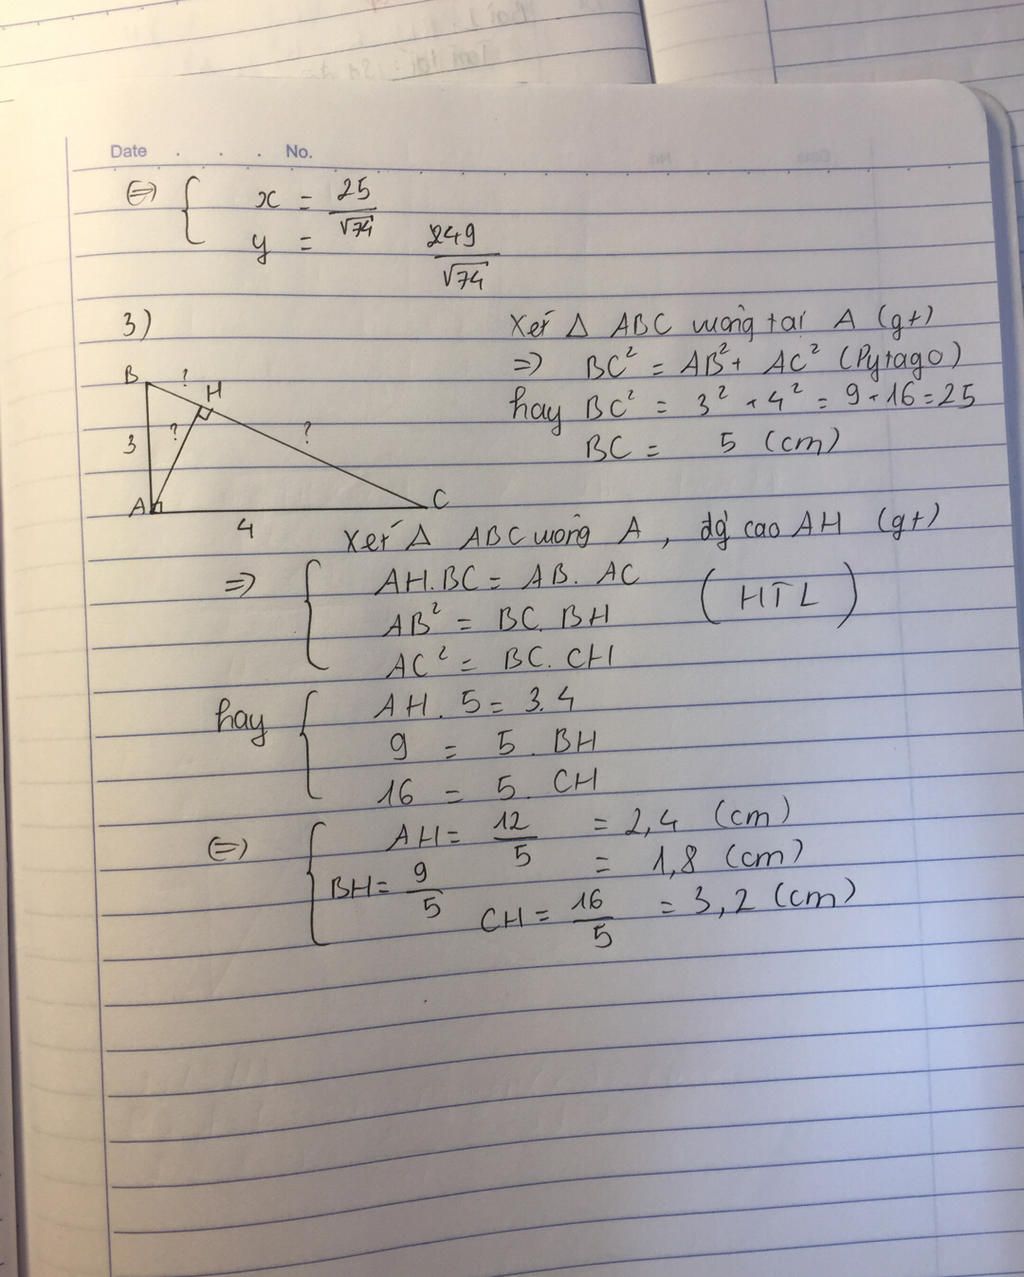 Date . . . No.
⇔ { x = 25/√74
y = 249/√74
3)
Xét Δ ABC vuông tại A (gt)
⇒ BC² = AB² + AC² (Pytago)
hay BC² = 3² + 4² = 9 + 16 = 25
BC = 5 (cm)
B ? H
3 ? ?
A C
4
Xét Δ ABC vuông A, đg cao AH (gt)
⇒ { AH.BC = AB. AC
AB² = BC. BH (HTL)
AC² = BC. CH
hay { AH. 5 = 3.4
9 = 5. BH
16 = 5. CH
⇔ { AH = 12/5 = 2,4 (cm)
BH = 9/5 = 1,8 (cm)
CH = 16/5 = 3,2 (cm)